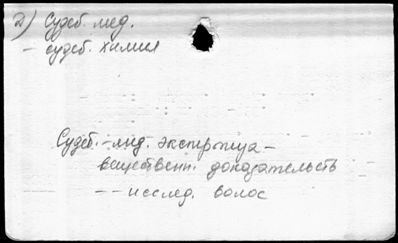 2) Судеб. мед.
- судеб. химия
Судеб.-мед. экспертиза -
веществен. доказательств
-- исслед. волос